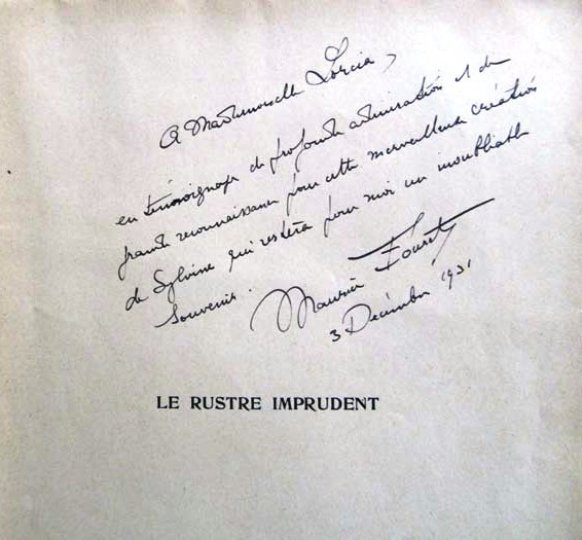 A Mademoiselle Lorcia,
en témoignage de profonde admiration et de
grande reconnaissance pour cette merveilleuse création
de Sylvine qui restera pour moi un inoubliable
souvenir.
Maurice Fouret
3 Décembre 1931
LE RUSTRE IMPRUDENT